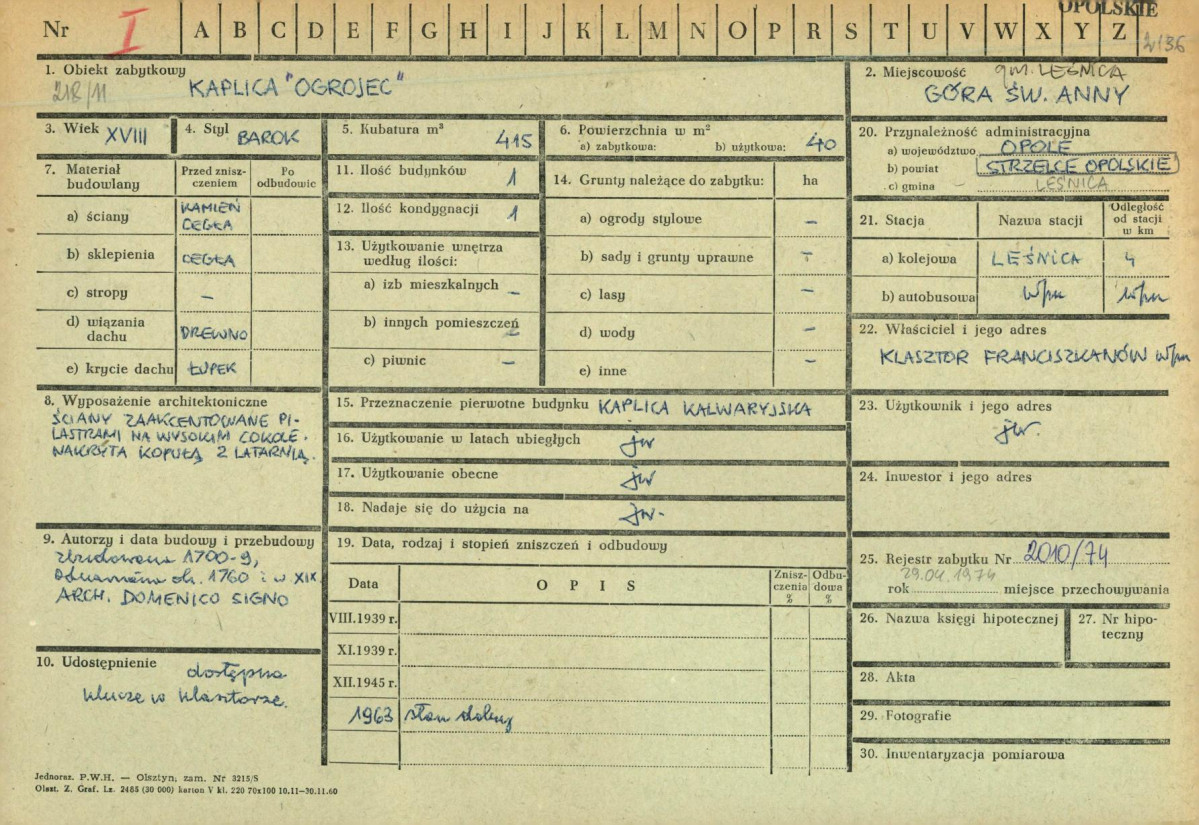 OPOLSKIE
Nr I A B C D E F G H I J K L M N O P R S T U V W X Y Z
2136
1. Obiekt zabytkowy
218/11
KAPLICA "OGROJEC"
2. Miejscowość gm. LEŚNICA
GÓRA ŚW. ANNY
3. Wiek XVIII
4. Styl BAROK
5. Kubatura m³ 415
6. Powierzchnia w m²
a) zabytkowa: b) użytkowa: 40
7. Materiał budowlany
Przed zniszczeniem
Po odbudowie
a) ściany KAMIEŃ
CEGŁA
b) sklepienia CEGŁA
c) stropy –
d) wiązania dachu DREWNO
e) krycie dachu ŁUPEK
8. Wyposażenie architektoniczne
ŚCIANY ZAAKCENTOWANE PI-
LASTRAMI NA WYSOKIM COKOLE.
NAKRYTA KOPUŁĄ Z LATARNIĄ.
9. Autorzy i data budowy i przebudowy
zbudowana 1700-9,
odnawiana ok. 1760 i w XIX.
ARCH. DOMENICO SIGNO
10. Udostępnienie
dostępna
klucze w klasztorze.
11. Ilość budynków 1
12. Ilość kondygnacji 1
13. Użytkowanie wnętrza
według ilości:
a) izb mieszkalnych –
b) innych pomieszczeń –
c) piwnic –
14. Grunty należące do zabytku: ha
a) ogrody stylowe –
b) sady i grunty uprawne –
c) lasy –
d) wody –
e) inne –
15. Przeznaczenie pierwotne budynku KAPLICA KALWARYJSKA
16. Użytkowanie w latach ubiegłych jw
17. Użytkowanie obecne jw
18. Nadaje się do użycia na jw.
19. Data, rodzaj i stopień zniszczeń i odbudowy
Data
O P I S
Znisz-
czenia
%
Odbu-
dowa
%
VIII.1939 r.
XI.1939 r.
XII.1945 r.
1963 stan dobry
20. Przynależność administracyjna
a) województwo OPOLE
b) powiat STRZELCE OPOLSKIE
c) gmina LEŚNICA
21. Stacja
Nazwa stacji
Odległość
od stacji
w km
a) kolejowa LEŚNICA 4
b) autobusowa w/m w/m
22. Właściciel i jego adres
KLASZTOR FRANCISZKANÓW w/m
23. Użytkownik i jego adres
jw.
24. Inwestor i jego adres
25. Rejestr zabytku Nr 2010/74
29.04.1974
rok miejsce przechowywania
26. Nazwa księgi hipotecznej
27. Nr hipo-
teczny
28. Akta
29. Fotografie
30. Inwentaryzacja pomiarowa
Jednoraz. P.W.H. — Olsztyn, zam. Nr 3215/S
Olszt. Z. Graf. Lz. 2485 (30 000) karton V kl. 220 70x100 10.11—30.11.60